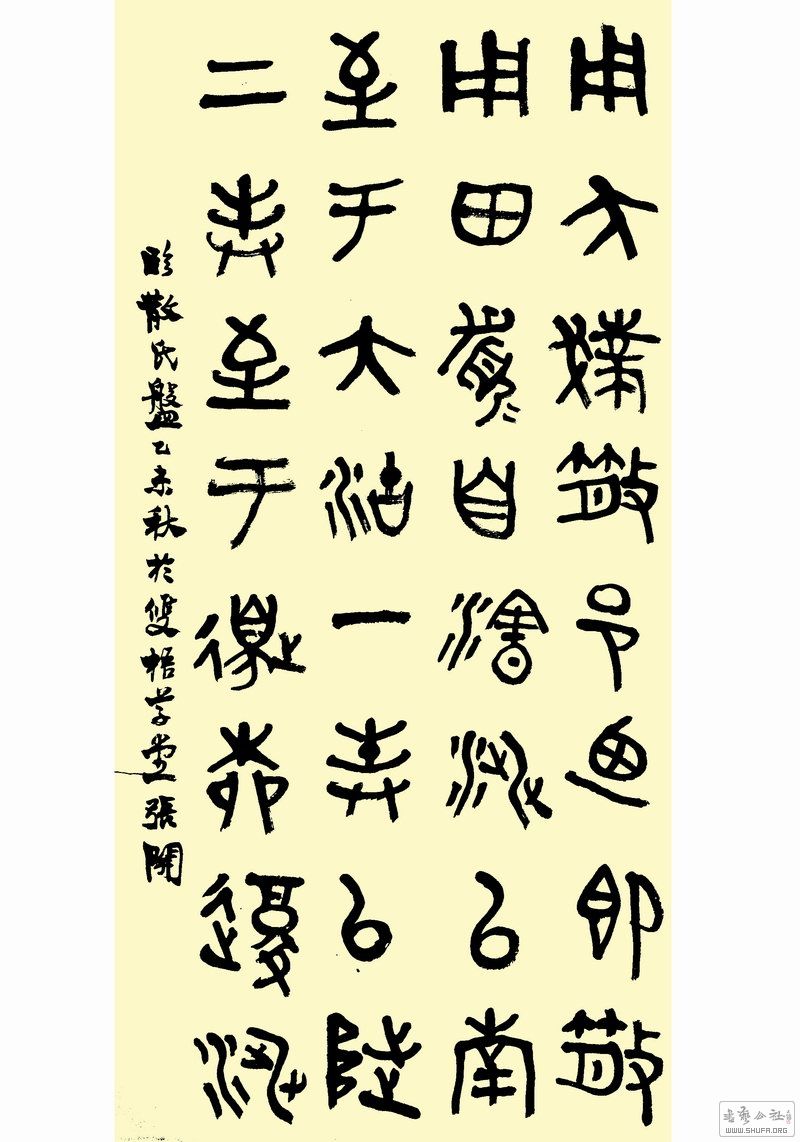 用夨撲散邑迺即散
用田眉自瀗涉以南
至于大沽一封以陟
二封至于邊柳復涉
臨散氏盤乙未秋於雙梧草堂張開
书艺公社
WWW.SHUFA.ORG